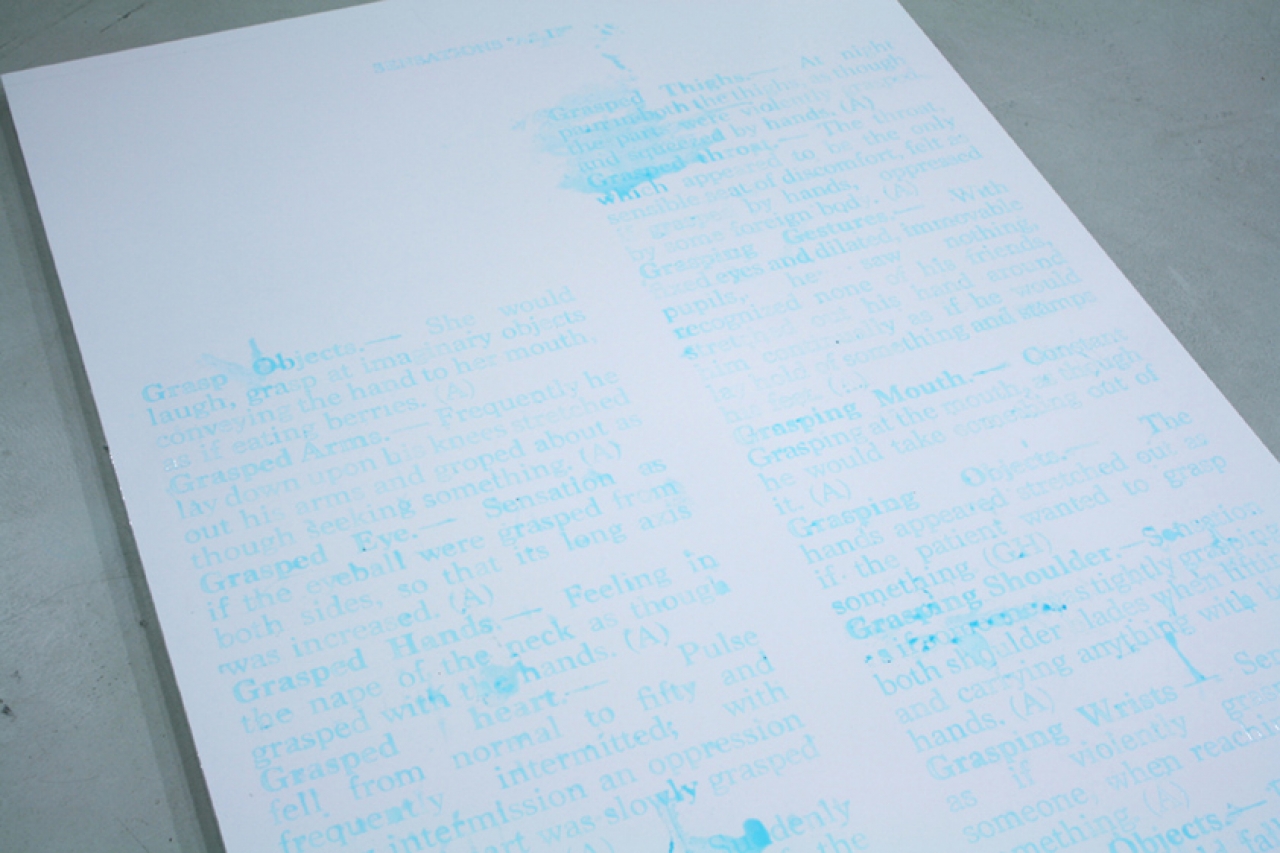 SENSATIONS
Grasp Objects.— She would
laugh, grasp at imaginary objects
conveying the hand to her mouth,
as if eating berries. (A)
Grasped Arms.— Frequently he
lay down upon his knees stretched
out his arms and groped about as
though seeking something. (A)
Grasped Eye.— Sensation as
if the eyeball were grasped from
both sides, so that its long axis
was increased. (A)
Grasped Hands.— Feeling in
the nape of the neck as though
grasped with the hands. (A)
Grasped heart.— Pulse
fell from normal to fifty and
frequently intermitted; with
intermission an oppression
was slowly grasped
(A)
the
Grasped Thighs.— At night
both the thighs as though
the parts were violently grasped
and squeezed by hands. (A)
Grasped throat.— The throat,
which appeared to be the only
sensible seat of discomfort, felt as
by hands, oppressed
by some foreign body. (A)
Grasping Gestures.— With
fixed eyes and dilated, immovable
pupils, he saw nothing,
recognized none of his friends,
stretched out his hand around
him continually as if he would
lay hold of something and stamps
his feet.
Grasping Mouth.— Constant
Grasping at the mouth, as though
he would take something out of
it. (A)
Grasping Objects.— The
hands appeared stretched out as
if the patient wanted to grasp
something (GH)
Grasping Shoulder.— Sensation
as if tightly grasping
both shoulder blades when lifting
and carrying anything with
hands. (A)
Grasping Wrists
as if violently
someone, when reaching
something. (A)
Objects.—